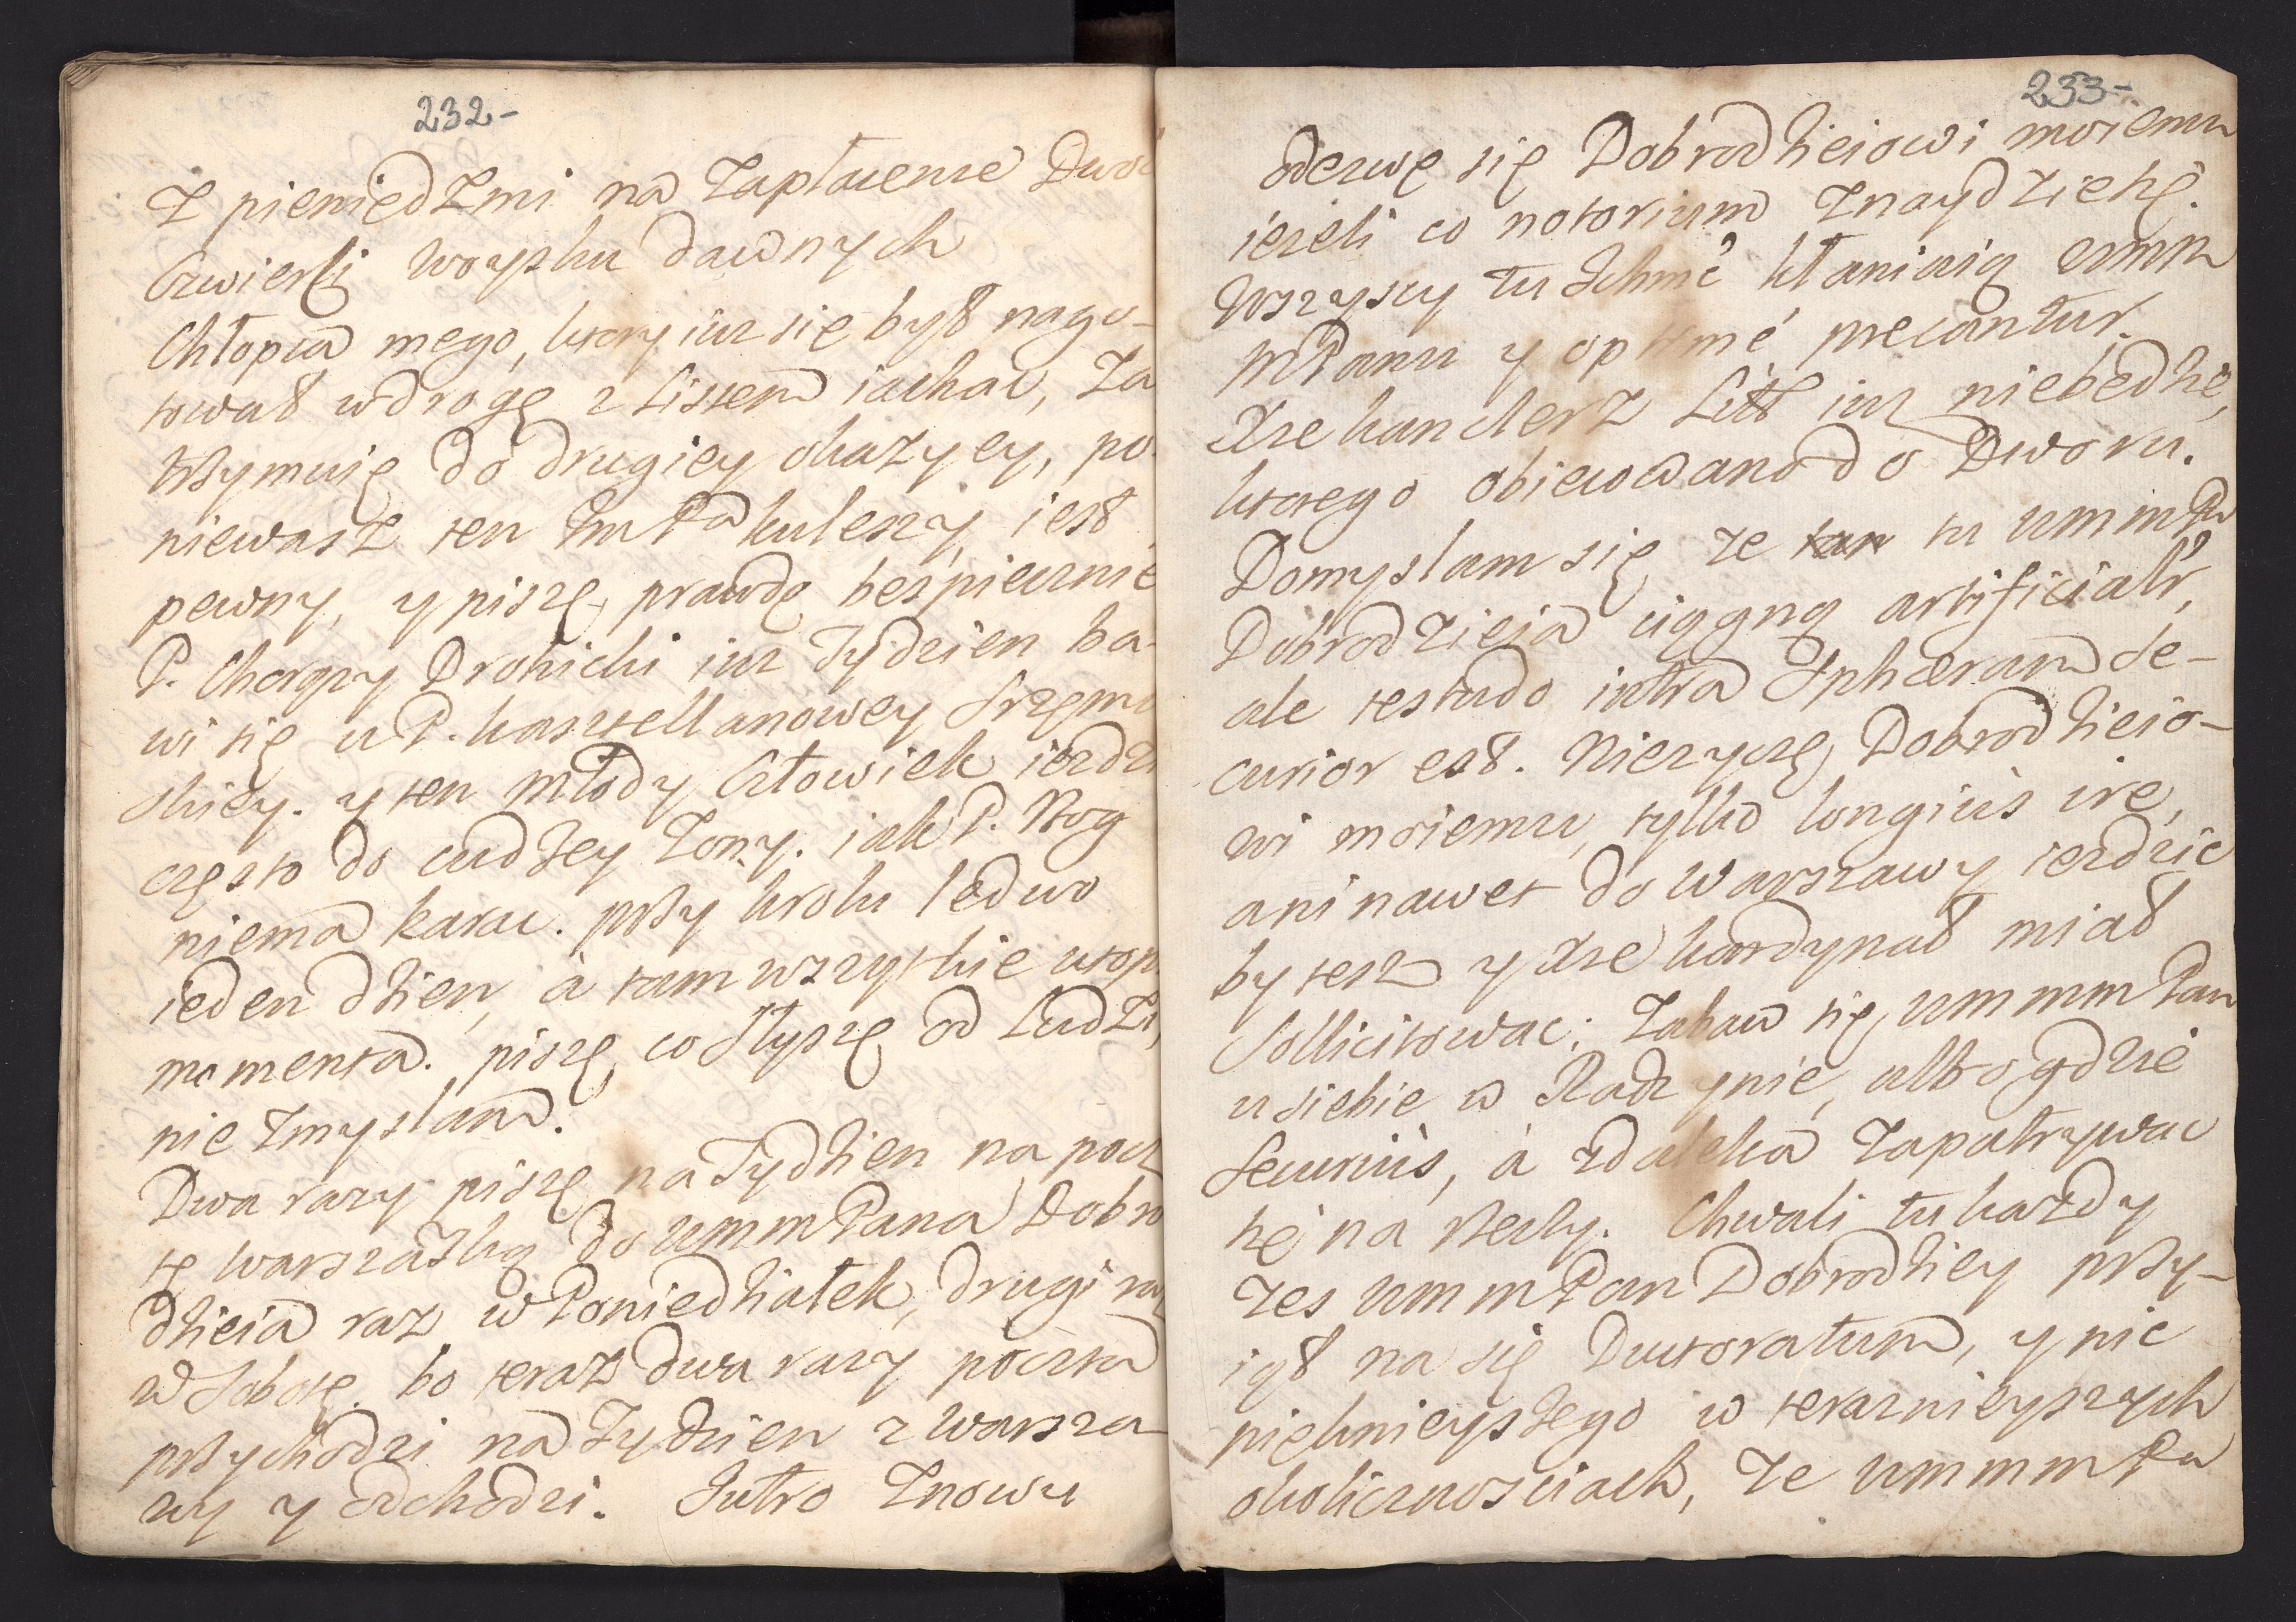 232-
Z pieniędzmi na zapłacenie Dwoc
Czwierci woyska dawnych
Chłopca mego, ktory iuz się był nago-
tował w drogę z Listem iachac, Za
trzymuię do drugiey okazyey, po
niewasz ten Im Pa kuleszy, iest
pewny, y piszę prawdę bespiecznie
P. Chorązy Drohicki iuz Tydzien ba-
wi się u P. kasztellanowey Srzęms
skiey. y ten młody Człowiek iezdzi
często do cudzey Zony. iak P. Bog
niema karac. przy krolu ledwo
ieden dzien, à tam wszytkie utopi
momenta. piszę co słyszę od Ludzi,
nie zmyslam.
Dwa razy piszę na Tydzien na pocz
tę warszazką do WMM Pana Dobro
dzieia raz w Poniedziałek, drugi raz
w Sobotę. bo teraz dwa razy poczta
przychodzi na Tydzien z Warsza-
wy y odchodzi. Jutro Znowu
233-
odezwę się Dobrodzieiowi moiemu
iezeli co notorium Znaydzie sę.
Wszyscy tu Ichmć kłaniaią
MPanu y optimé precantur.
Xze kanclerz Litt iuz niebędzie,
ktorego obiecowano do Dworu.
Domyslam się ze tu WMMPa
Dobrodzieia ciągną artificialr,
ale testudo intra Sphæram se-
curior est. Niezyczę Dobrodzieio-
wi moiemu, tylko longiùs ire,
ani nawet do Warszawy iezdzic
by tesz y Xze kardynał miał
sollicitowac: Zabaw się WMMM Pan
u siebie w Radzynie, albo gdzie
securiùs, à zdaleka Zapatrywac
sę na rzeczy. Chwali tu kazdy
zes WMM Pan Dobrodziey przy-
iął na się Ductoratum, y nic
pieknieyszego w teraznieyszych
okolicznosciach, ze WMMM Pa